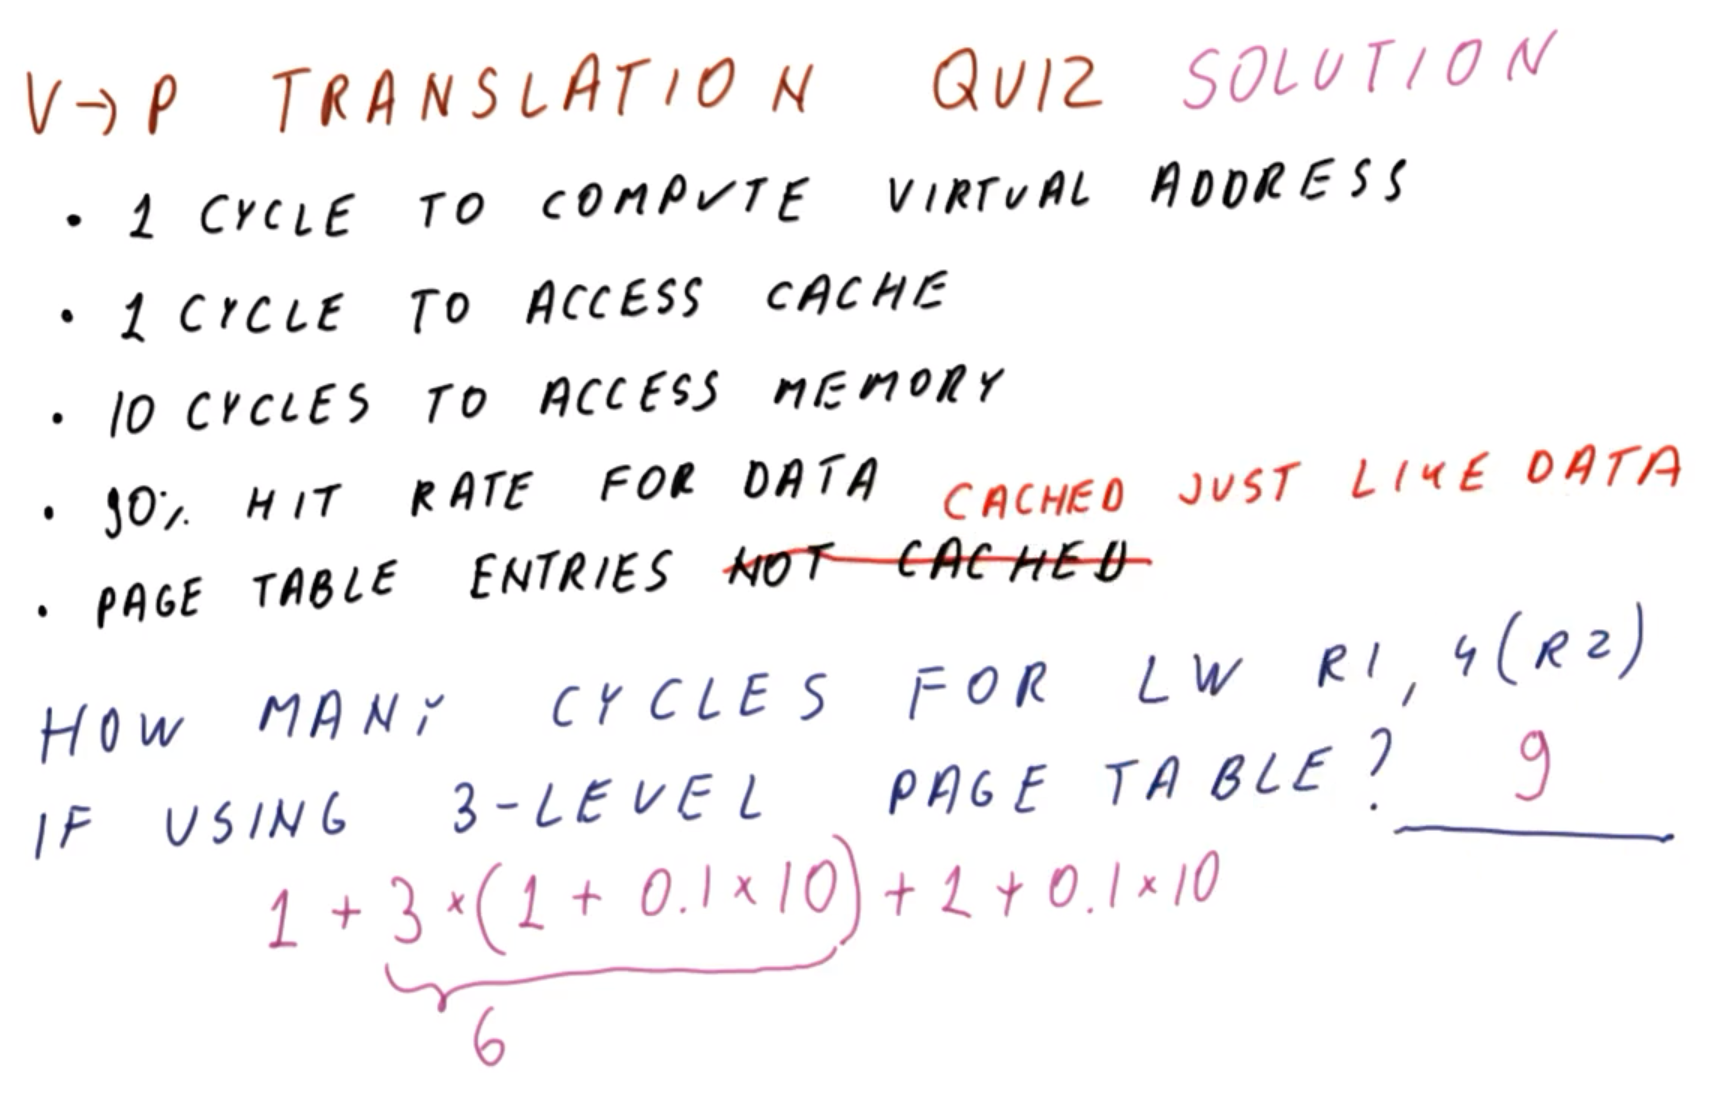 V→P TRANSLATION QUIZ SOLUTION
• 1 CYCLE TO COMPUTE VIRTUAL ADDRESS
• 1 CYCLE TO ACCESS CACHE
• 10 CYCLES TO ACCESS MEMORY
• 90% HIT RATE FOR DATA
CACHED JUST LIKE DATA
• PAGE TABLE ENTRIES NOT CACHED
HOW MANY CYCLES FOR LW R1, 4(R2)
IF USING 3-LEVEL PAGE TABLE? 9
1 + 3 × (1 + 0.1 × 10) + 1 + 0.1 × 10
6